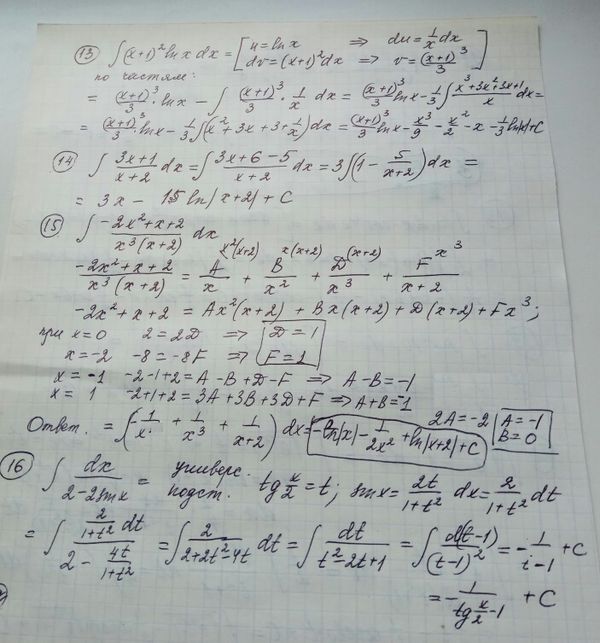 13) ∫(x+1)² ln x dx = [u = ln x ⇒ du = 1/x dx
dv = (x+1)² dx ⇒ v = (x+1)³/3]
по частям:
= (x+1)³/3 · ln x − ∫ (x+1)³/3 · 1/x dx = (x+1)³/3 ln x − 1/3 ∫ (x³+3x²+3x+1)/x dx =
= (x+1)³/3 · ln x − 1/3 ∫(x²+3x+3+1/x) dx = (x+1)³/3 ln x − x³/9 − x²/2 − x − 1/3 ln|x| + C
14) ∫ (3x+1)/(x+2) dx = ∫ (3x+6−5)/(x+2) dx = 3∫(1 − 5/(x+2)) dx =
= 3x − 15 ln|x+2| + C
15) ∫ (−2x²+x+2)/(x³(x+2)) dx
x²(x+2) x(x+2) (x+2) x³
(−2x²+x+2)/(x³(x+2)) = A/x + B/x² + D/x³ + F/(x+2)
−2x²+x+2 = Ax²(x+2) + Bx(x+2) + D(x+2) + Fx³;
при x=0 2 = 2D ⇒ D = 1
x=−2 −8 = −8F ⇒ F = 1
x = −1 −2−1+2 = A − B + D − F ⇒ A−B = −1
x = 1 −2+1+2 = 3A + 3B + 3D + F ⇒ A+B = −1
2A = −2 A = −1
B = 0
Ответ. = ∫(−1/x + 1/x³ + 1/(x+2)) dx = −ln|x| − 1/2x² + ln|x+2| + C
16) ∫ dx/(2−2sin x) = универс. подст. tg x/2 = t; sin x = 2t/(1+t²) dx = 2/(1+t²) dt
= ∫ (2/(1+t²) dt)/(2 − 4t/(1+t²)) = ∫ 2/(2+2t²−4t) dt = ∫ dt/(t²−2t+1) = ∫ d(t−1)/(t−1)² = −1/(t−1) + C
= −1/(tg x/2 −1) + C